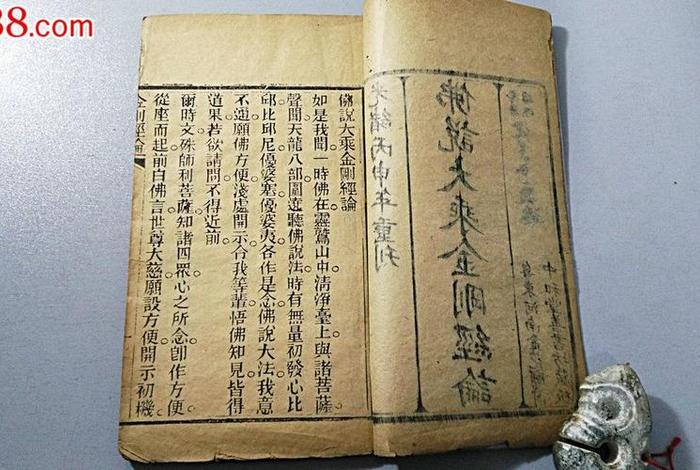 88.com
佛說大乘金剛經論
光緒丙申年重刊
佛說大乘金剛經論
如是我聞一時佛在靈鷲山中清淨臺上與諸菩薩
聲聞天龍八部圍遶聽佛說法。時有無量初發心比
邱比邱尼優婆塞優婆夷各作是念。佛說大法。我意
不達。願佛方便淺處開示。令我等輩悟佛知見。皆得
道果。若欲請問。不得近前。
爾時文殊師利菩薩。知諸四眾心之所念。卽作方便。
從座而起。前白佛言。世尊大慈。願設方便。開示初機。
金剛經論